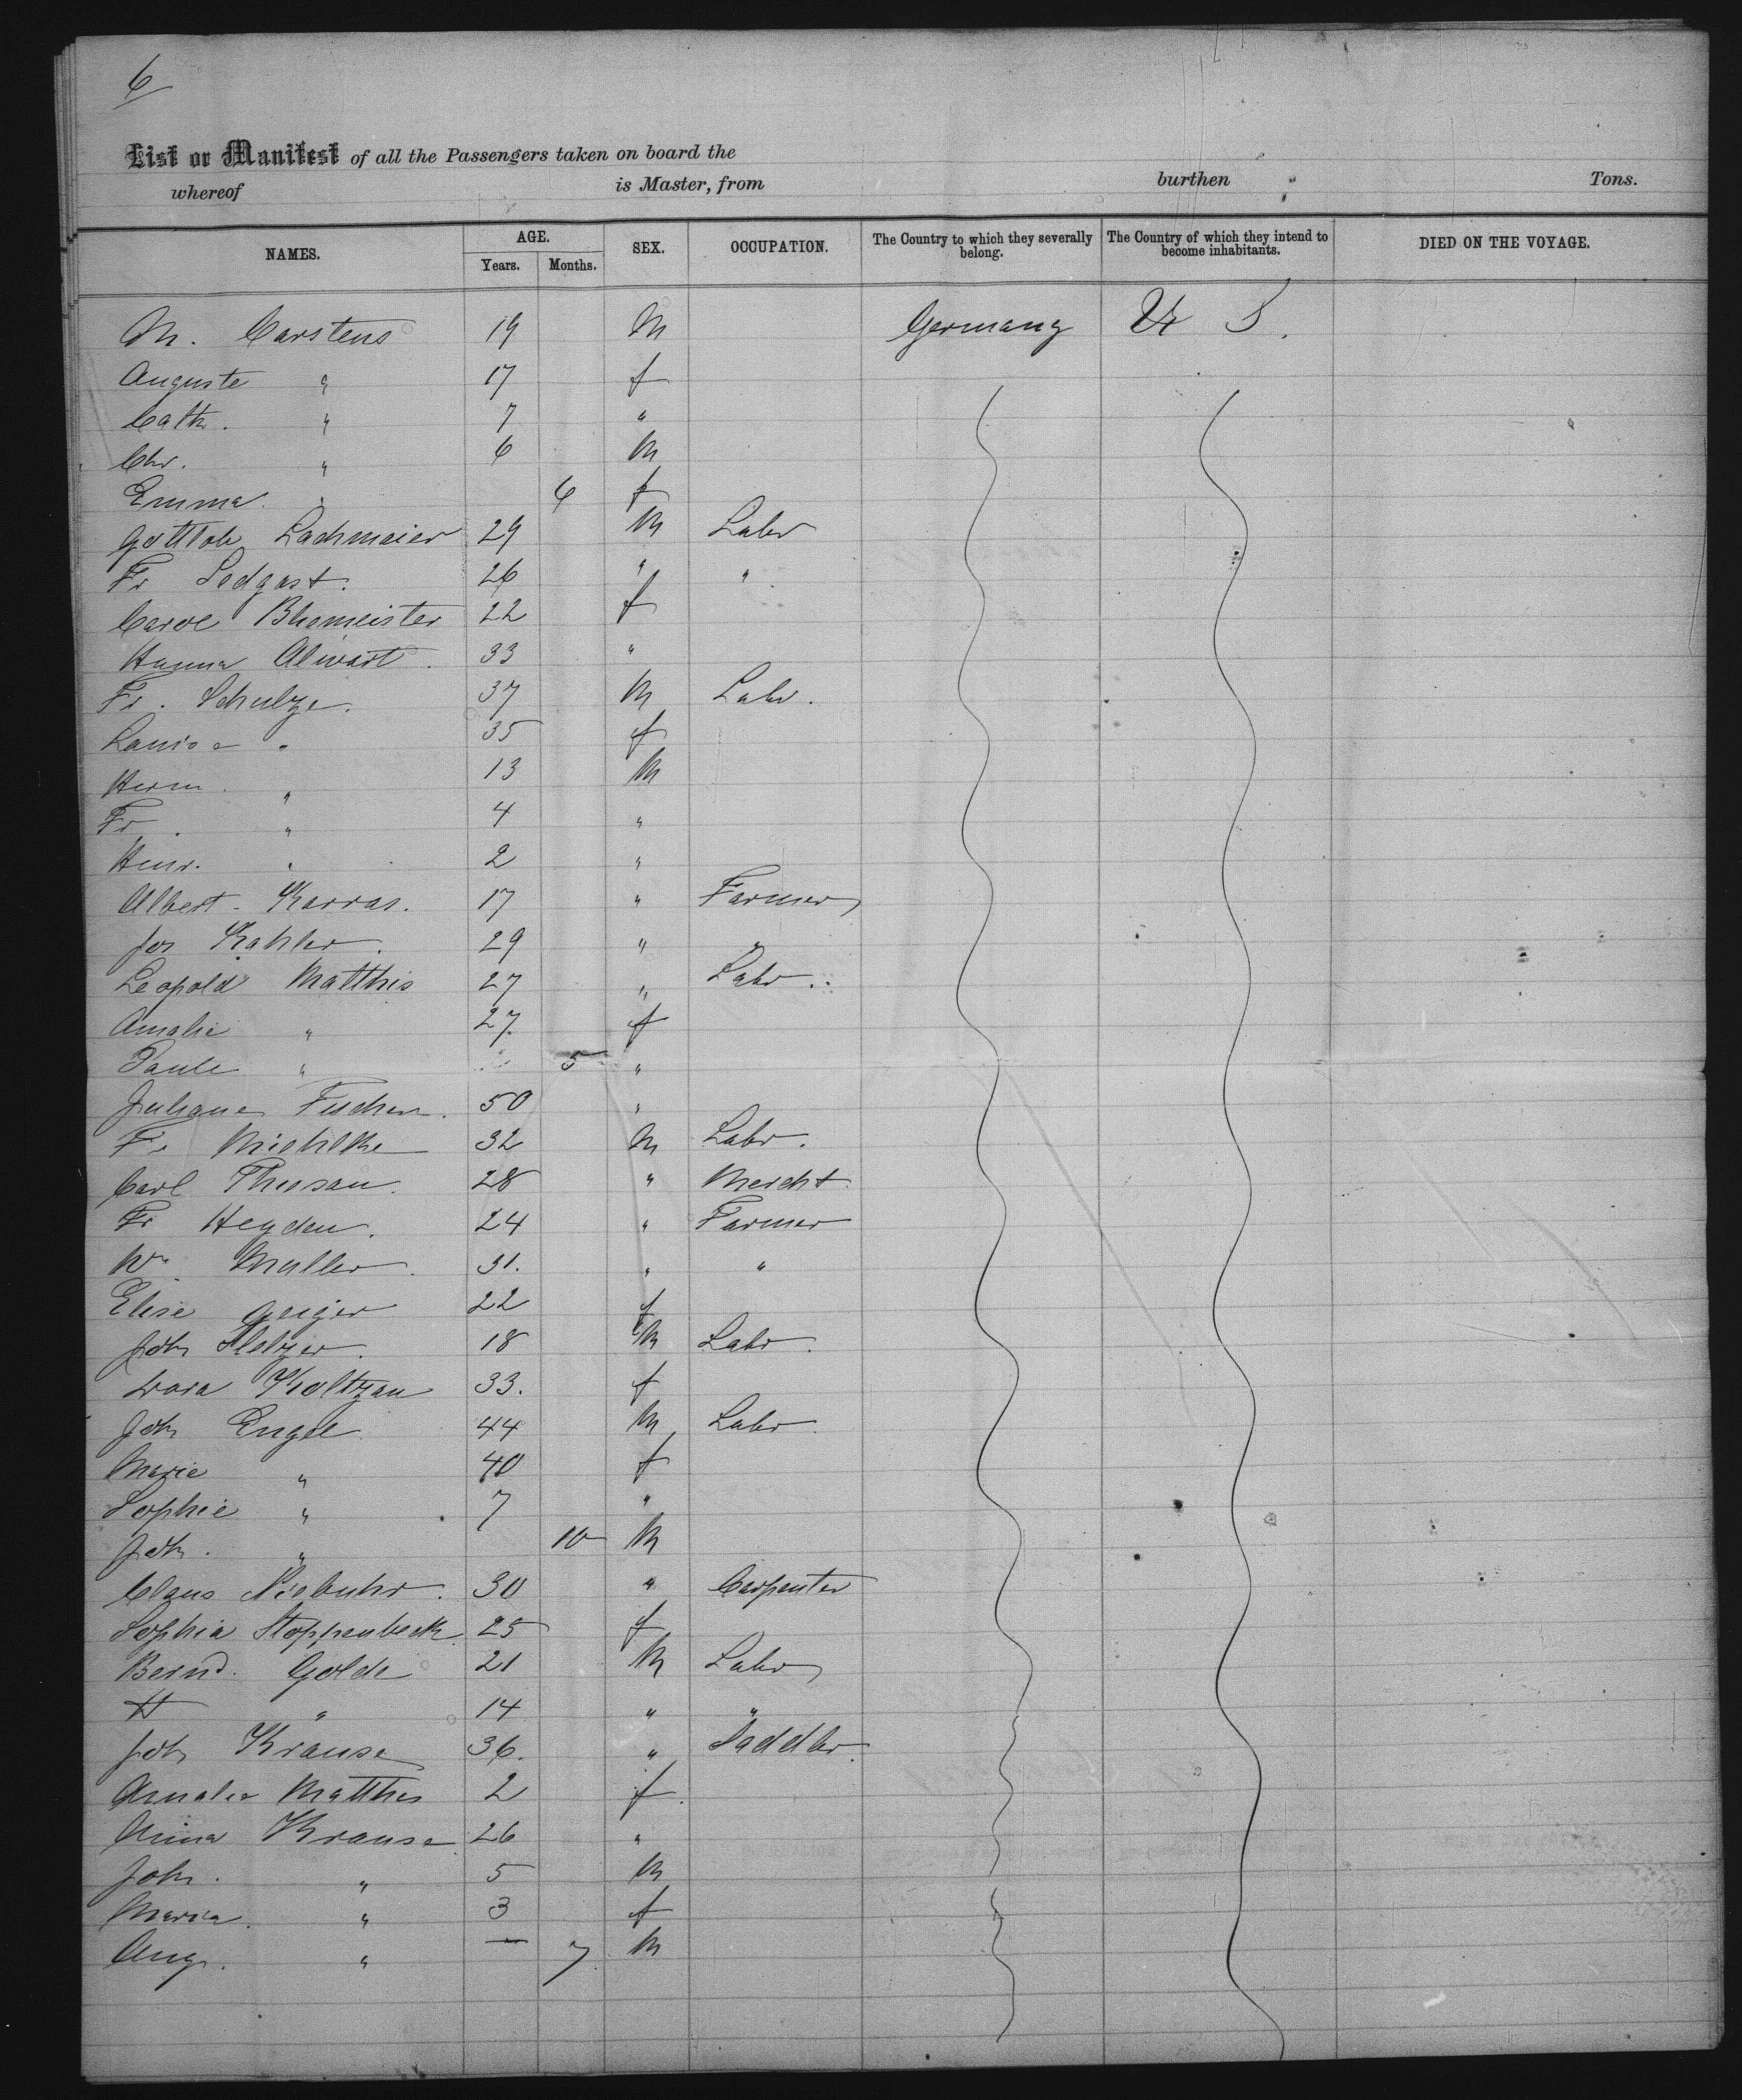 6
List or Manifest of all the Passengers taken on board the
whereof is Master, from burthen Tons.
NAMES. AGE. Years. Months. SEX. OCCUPATION. The Country to which they severally belong. The Country of which they intend to become inhabitants. DIED ON THE VOYAGE.
M. Carstens 19 M Germany U S.
Auguste " 17 f
Cath. " 7 "
Chr. " 6 M
Emma " 6 f
Gottlob Lachmeier 29 M Labr
Fr Sedgast. 26 " "
Carol Blumeister 22 f
Hanna Alwart. 33 "
Fr. Schulze. 37 M Labr.
Louise " 35 f
Herm. " 13 M
Fr. " 4 "
Henr. " 2 "
Albert Karras. 17 " Farmer
Jos Kahler. 29 " "
Leopold Matthis 27 " Labr.
Amalie " 27. f
Paule " 5 "
Juliane 50 "
Fr 32 M Labr.
Carl 28 " Mercht.
Fr Heyden. 24 " Farmer
Wm. Muller. 31. " "
Elise Geiger 22 f
Joh Melzer. 18 M Labr.
Dora Koltzau 33. f
Joh Engel 44 M Labr.
Marie " 40 f
Sophie " 7 "
Joh. " 10 M
Claus Niebuhr. 30 " Carpenter
Sophia Stoppenbeck 25 f
Bernd. Golde 21 M Labr
H " 14 " "
Joh Krause 36. " Saddlr.
Amalie Matthes 2 f.
Mina Krause 26 "
Joh. " 5 M
Maria. " 3 f
Aug. " — 7. M